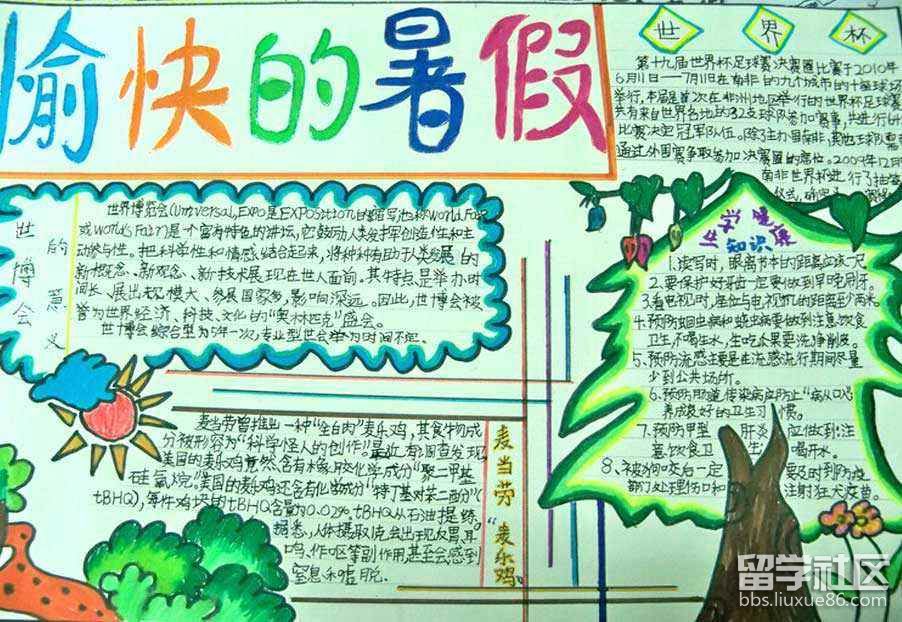 愉快的暑假
世界杯
第十九届世界杯足球赛决赛圈比赛于2010年
6月11日——7月11日在南非的九个城市的十座球场
举行,本届是首次在非洲地区举行的世界杯足球赛
共有来自世界各地的32支球队参加赛事,共进行64
比赛决定冠军队伍。除了主办国南非,其他球队需
通过外围赛争取参加决赛圈的席位。2009年12月
南非世界杯进行了抽签
仪式,
世博会
的意义
世界博览会(Universal,Expo是Exposition的缩写;也称World Fair
或World's Fair)是个富有特色的讲坛,它鼓励人类发挥创造性和主
动参与性。把科学性和情感结合起来,将种种有助于人类发展的
新概念、新观念、新技术展现在世人面前。其特点是举办时
间长、展出规模大、参展国家多,影响深远。因此,世博会被
誉为世界经济、科技、文化的"奥林匹克"盛会。
世博会综合型为5年一次,专业型世会举办时间不定。
知识
1.读写时,眼离书本的距离应该一尺
2.要保护好牙齿一定要做到早晚刷牙。
3.看电视时,座位与电视机的距离至少两米。
4.预防蛔虫病和蛲虫病要做到注意饮食
卫生,不喝生水,生吃瓜果要洗净削皮。
5、预防流感主要是在流感流行期间尽量
少到公共场所。
6.预防肠道传染病应防止"病从口入"
养成良好的卫生习惯。
7.预防甲型肝炎应做到:注
意饮食卫生 喝开水。
8、被狗咬后一定要及时到防疫
部门处理伤口和注射狂犬疫苗。
麦当劳曾推出一种"全白肉"麦乐鸡,其食物成
分被形容为"科学怪人的创作"最近有调查发现
美国的麦乐鸡竟然含有橡胶化学成分"聚二甲基
硅氧烷"。美国的麦乐鸡还含有化学成分"特丁基对苯二酚"(
tBHQ),每件鸡块的tBHQ含量为0.02%,tBHQ从石油提练,
据悉,人体摄取后,会出现反胃、耳
鸣、作呕等副作用甚至会感到
窒息和虚脱。
麦当劳"麦乐鸡"
留学社区
bbs.liuxue86.com